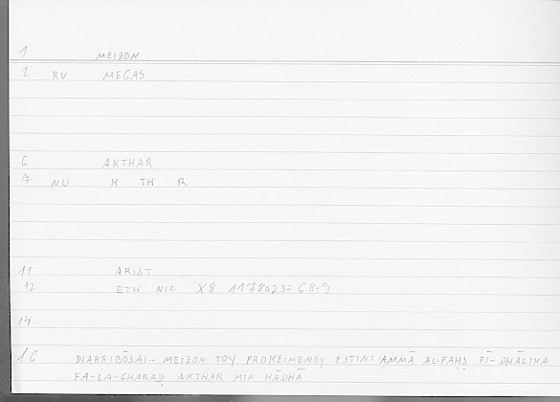 1 MEIZON
2 RV MEGAS
6 AKTHAR
7 NU K TH R
11 ARIST
12 ETH NIC X8 1178a23=68.9
14
16 DIAKRIBŌSAI... MEIZON TOY PROKEIMENOY ESTIN: AMMĀ AL-FAḤṢ FĪ-DHĀLIKA
FA-LA-GHARAḌ AKTHAR MIN HĀDHĀ